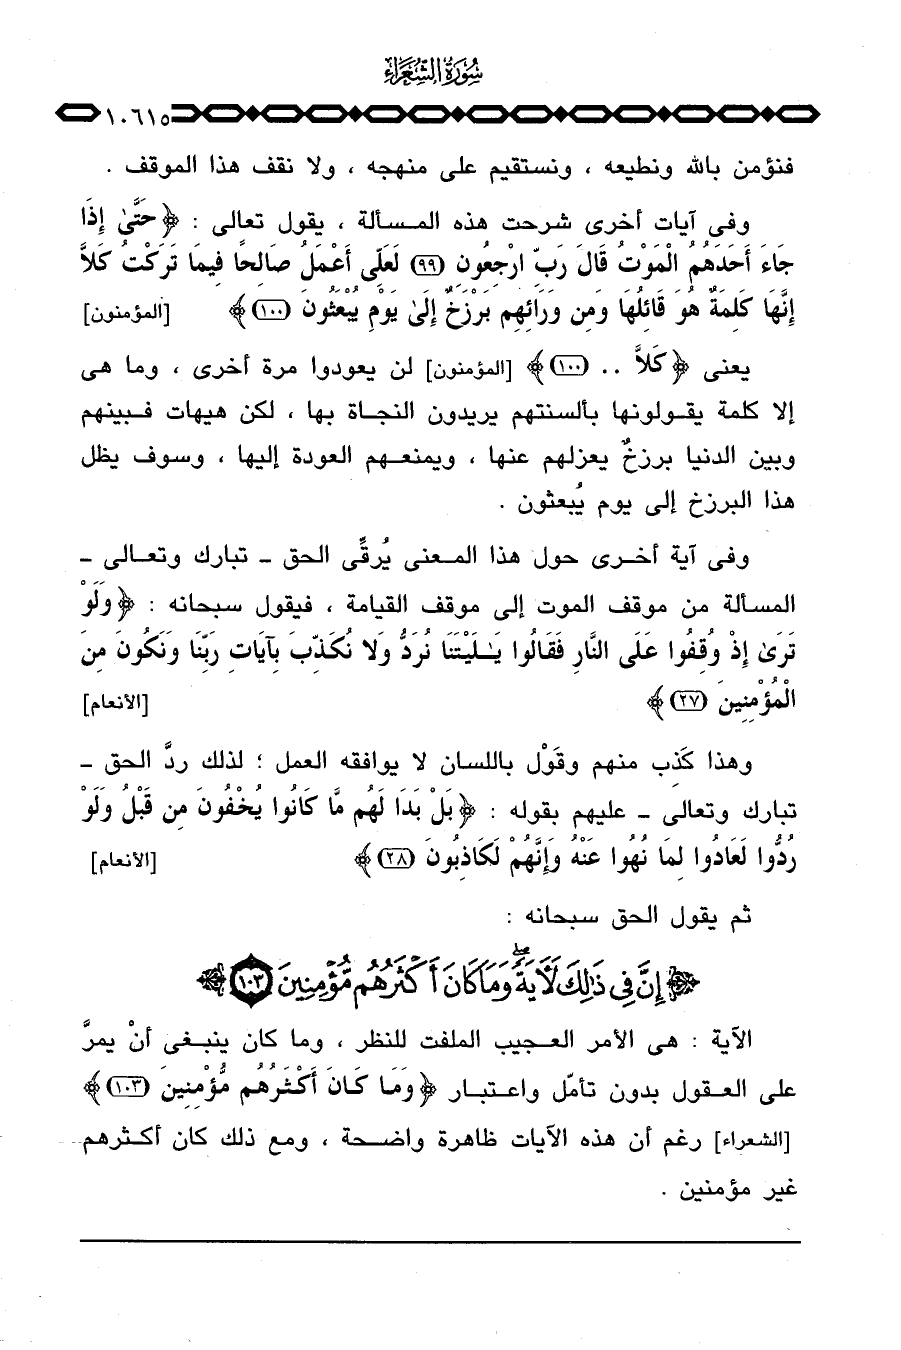 سُورَةُ الشُّعَرَاءِ
١٠٦١٥
فنؤمن بالله ونطيعه ، ونستقيم على منهجه ، ولا نقف هذا الموقف .
وفى آيات أخرى شرحت هذه المسألة ، يقول تعالى : ﴿ حَتَّىٰ إِذَا
جَاءَ أَحَدَهُمُ الْمَوْتُ قَالَ رَبِّ ارْجِعُونِ (٩٩) لَعَلِّى أَعْمَلُ صَالِحًا فِيمَا تَرَكْتُ كَلاَّ
إِنَّهَا كَلِمَةٌ هُوَ قَائِلُهَا وَمِن وَرَائِهِم بَرْزَخٌ إِلَىٰ يَوْمِ يُبْعَثُونَ (١٠٠) ﴾ [المؤمنون]
يعنى ﴿ كَلاَّ .. (١٠٠) ﴾ [المؤمنون] لن يعودوا مرة أخرى ، وما هى
إلا كلمة يقولونها بألسنتهم يريدون النجاة بها ، لكن هيهات فبينهم
وبين الدنيا برزخٌ يعزلهم عنها ، ويمنعهم العودة إليها ، وسوف يظل
هذا البرزخ إلى يوم يُبعثون .
وفى آية أخرى حول هذا المعنى يُرقِّى الحق ـ تبارك وتعالى ـ
المسألة من موقف الموت إلى موقف القيامة ، فيقول سبحانه : ﴿ وَلَوْ
تَرَىٰ إِذْ وُقِفُوا عَلَى النَّارِ فَقَالُوا يَـٰلَيْتَنَا نُرَدُّ وَلَا نُكَذِّبَ بِآيَاتِ رَبِّنَا وَنَكُونَ مِنَ
الْمُؤْمِنِينَ (٢٧) ﴾ [الأنعام]
وهذا كَذِب منهم وقَوْل باللسان لا يوافقه العمل ؛ لذلك ردَّ الحق ـ
تبارك وتعالى ـ عليهم بقوله : ﴿ بَلْ بَدَا لَهُم مَّا كَانُوا يُخْفُونَ مِن قَبْلُ وَلَوْ
رُدُّوا لَعَادُوا لِمَا نُهُوا عَنْهُ وَإِنَّهُمْ لَكَاذِبُونَ (٢٨) ﴾ [الأنعام]
ثم يقول الحق سبحانه :
﴿ إِنَّ فِى ذَٰلِكَ لَآيَةً ۖ وَمَا كَانَ أَكْثَرُهُم مُّؤْمِنِينَ (١٠٣) ﴾
الآية : هى الأمر العجيب الملفت للنظر ، وما كان ينبغى أنْ يمرَّ
على العقول بدون تأمّل واعتبار ﴿ وَمَا كَانَ أَكْثَرُهُم مُّؤْمِنِينَ (١٠٣) ﴾
[الشعراء] رغم أن هذه الآيات ظاهرة واضحة ، ومع ذلك كان أكثرهم
غير مؤمنين .